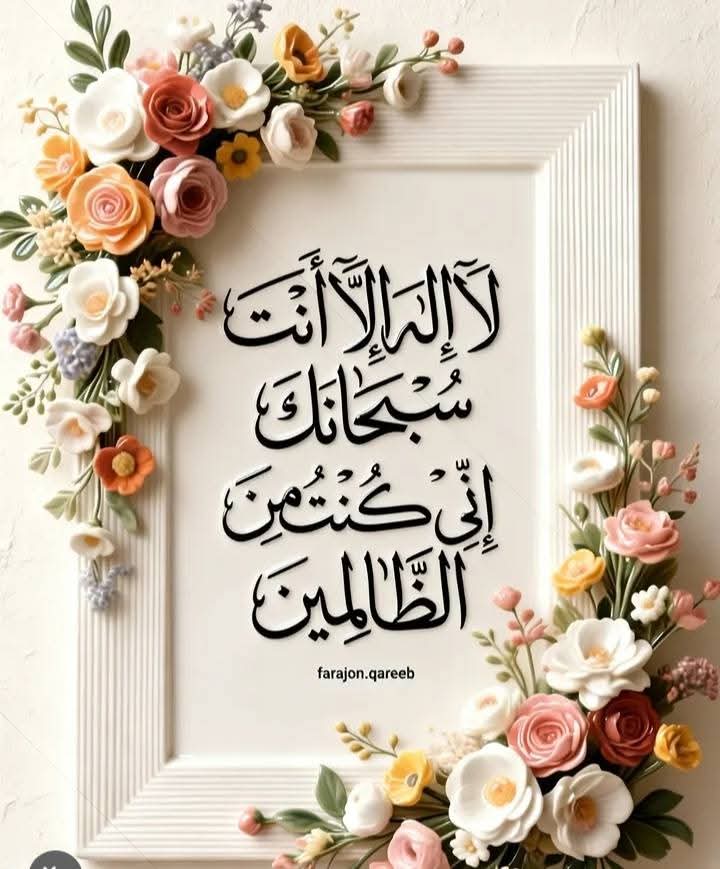 لَآ إِلَٰهَ إِلَّآ أَنْتَ
سُبْحَانَكَ
إِنِّي كُنْتُ مِنَ
الظَّالِمِينَ
farajon.qareeb